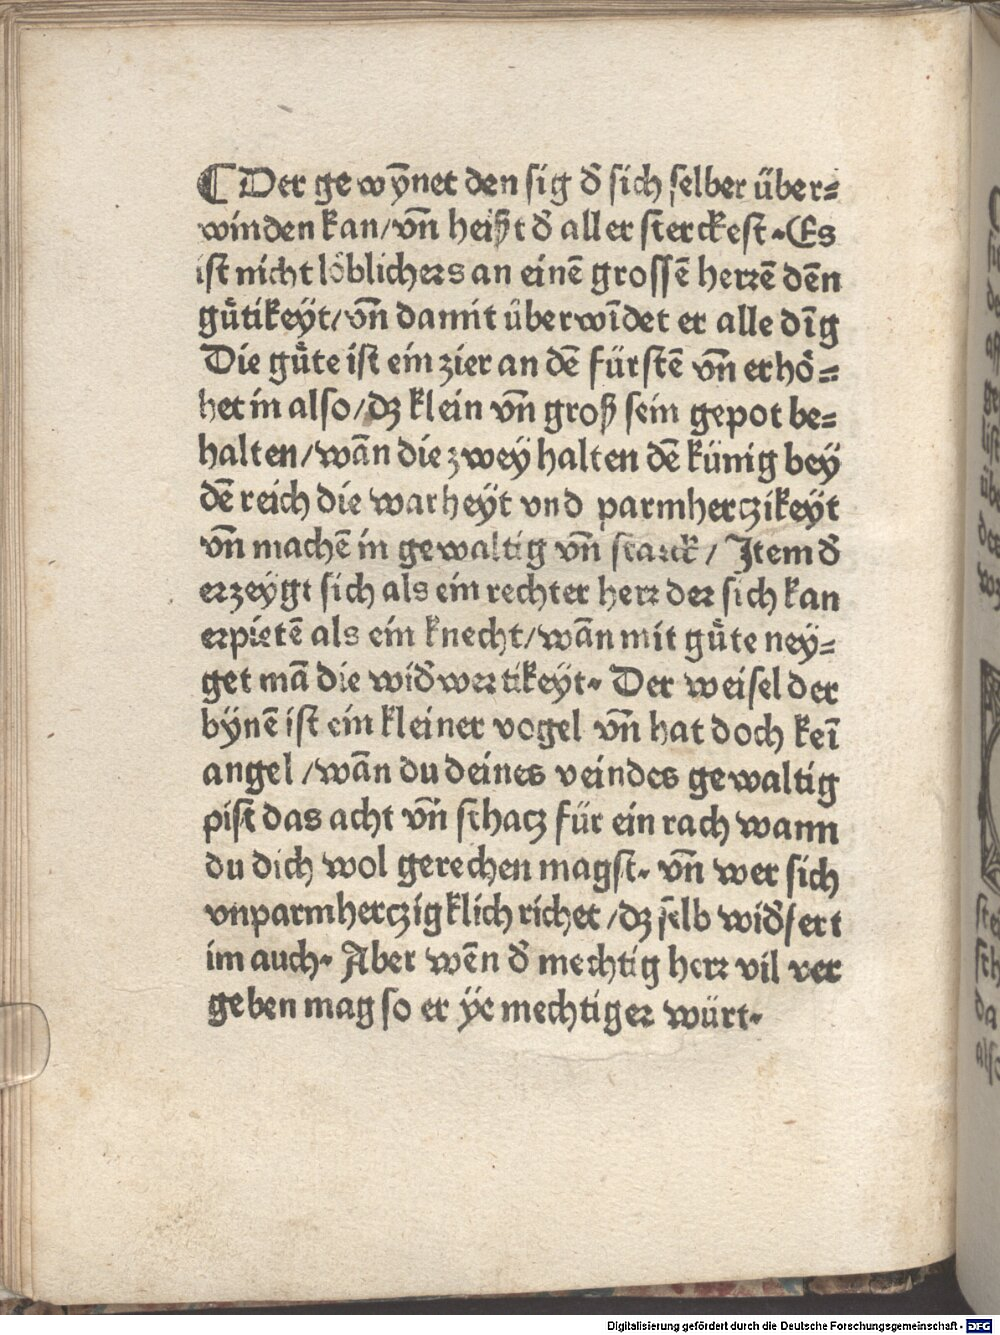 ⸿ Der gewȳnet den sig đ sich selber über⸗
winden kan/vn̄ heißt đ aller sterckest. Es
ist nicht löblichers an einē grossē herrē dēn
gu̍tikeyt/vn̄ damit überwīdet er alle dīg
Die gu̍te ist ein zier an dē fürstē vn̄ erhö⸗
het in also/dz klein vn̄ groß sein gepot be⸗
halten/wān die zwey halten dē künig bey
dē reich die warheyt vnd parmherczikeyt
vn̄ machē in gewaltig vn̄ starck/Item đ
erzeygt sich als ein rechter herr der sich kan
erpietē als ein knecht/wān mit gu̍te ney⸗
get mā die wiđwertikeyt. Der weisel der
bynē ist ein kleiner vogel vn̄ hat doch keī
angel/wān du deines veindes gewaltig
pist das acht vn̄ schacz für ein rach wann
du dich wol gerechen magst. vn̄ wer sich
vnparmherczigklich richet/dz selb wiđfert
im auch. Aber wēn đ mechtig herr vil ver
geben mag so er ye mechtiger würt.
Digitalisierung gefördert durch die Deutsche Forschungsgemeinschaft - DFG